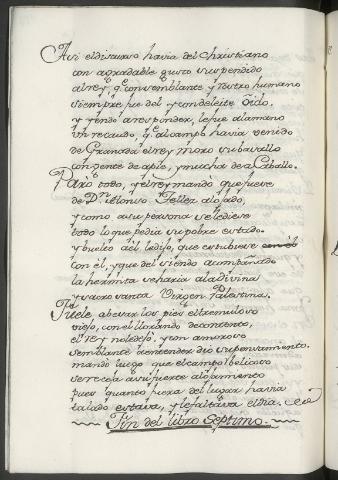 Asi el discurso havia del christiano
con agradable gusto suspendido
al rey, q.e con semblante, y rostro humano
siempre fue del y con deleite oido.
y yendo a responder, le fue a la mano
un recaudo, q.e al campo havia venido
de Granada el rey Moro su vasallo
con gente de apie, y mucha de a Caballo.
Paró todo, y el rey mandó que fuese
de D.n Alonso Tellez alojado,
y como a su persona se le diese
todo lo que pedia su pobre estado.
y buelto a el le dijo, que estubiese
con él, y que del siendo acompañado
la hermita se haria a la divina
y sacrosanta Virgen Palestina.
Fuele a besar los pies el tremuloso
viejo, con el llorando de contento,
el rey no le dejo, y con amoroso
semblante a entender dio su pensamiento.
mandó luego que el campo belicoso
se recoja a su fuerte alojamiento
pues quanto fuera del lugar havia
talado estava, y le faltava el dia.
Fin del libro Septimo.